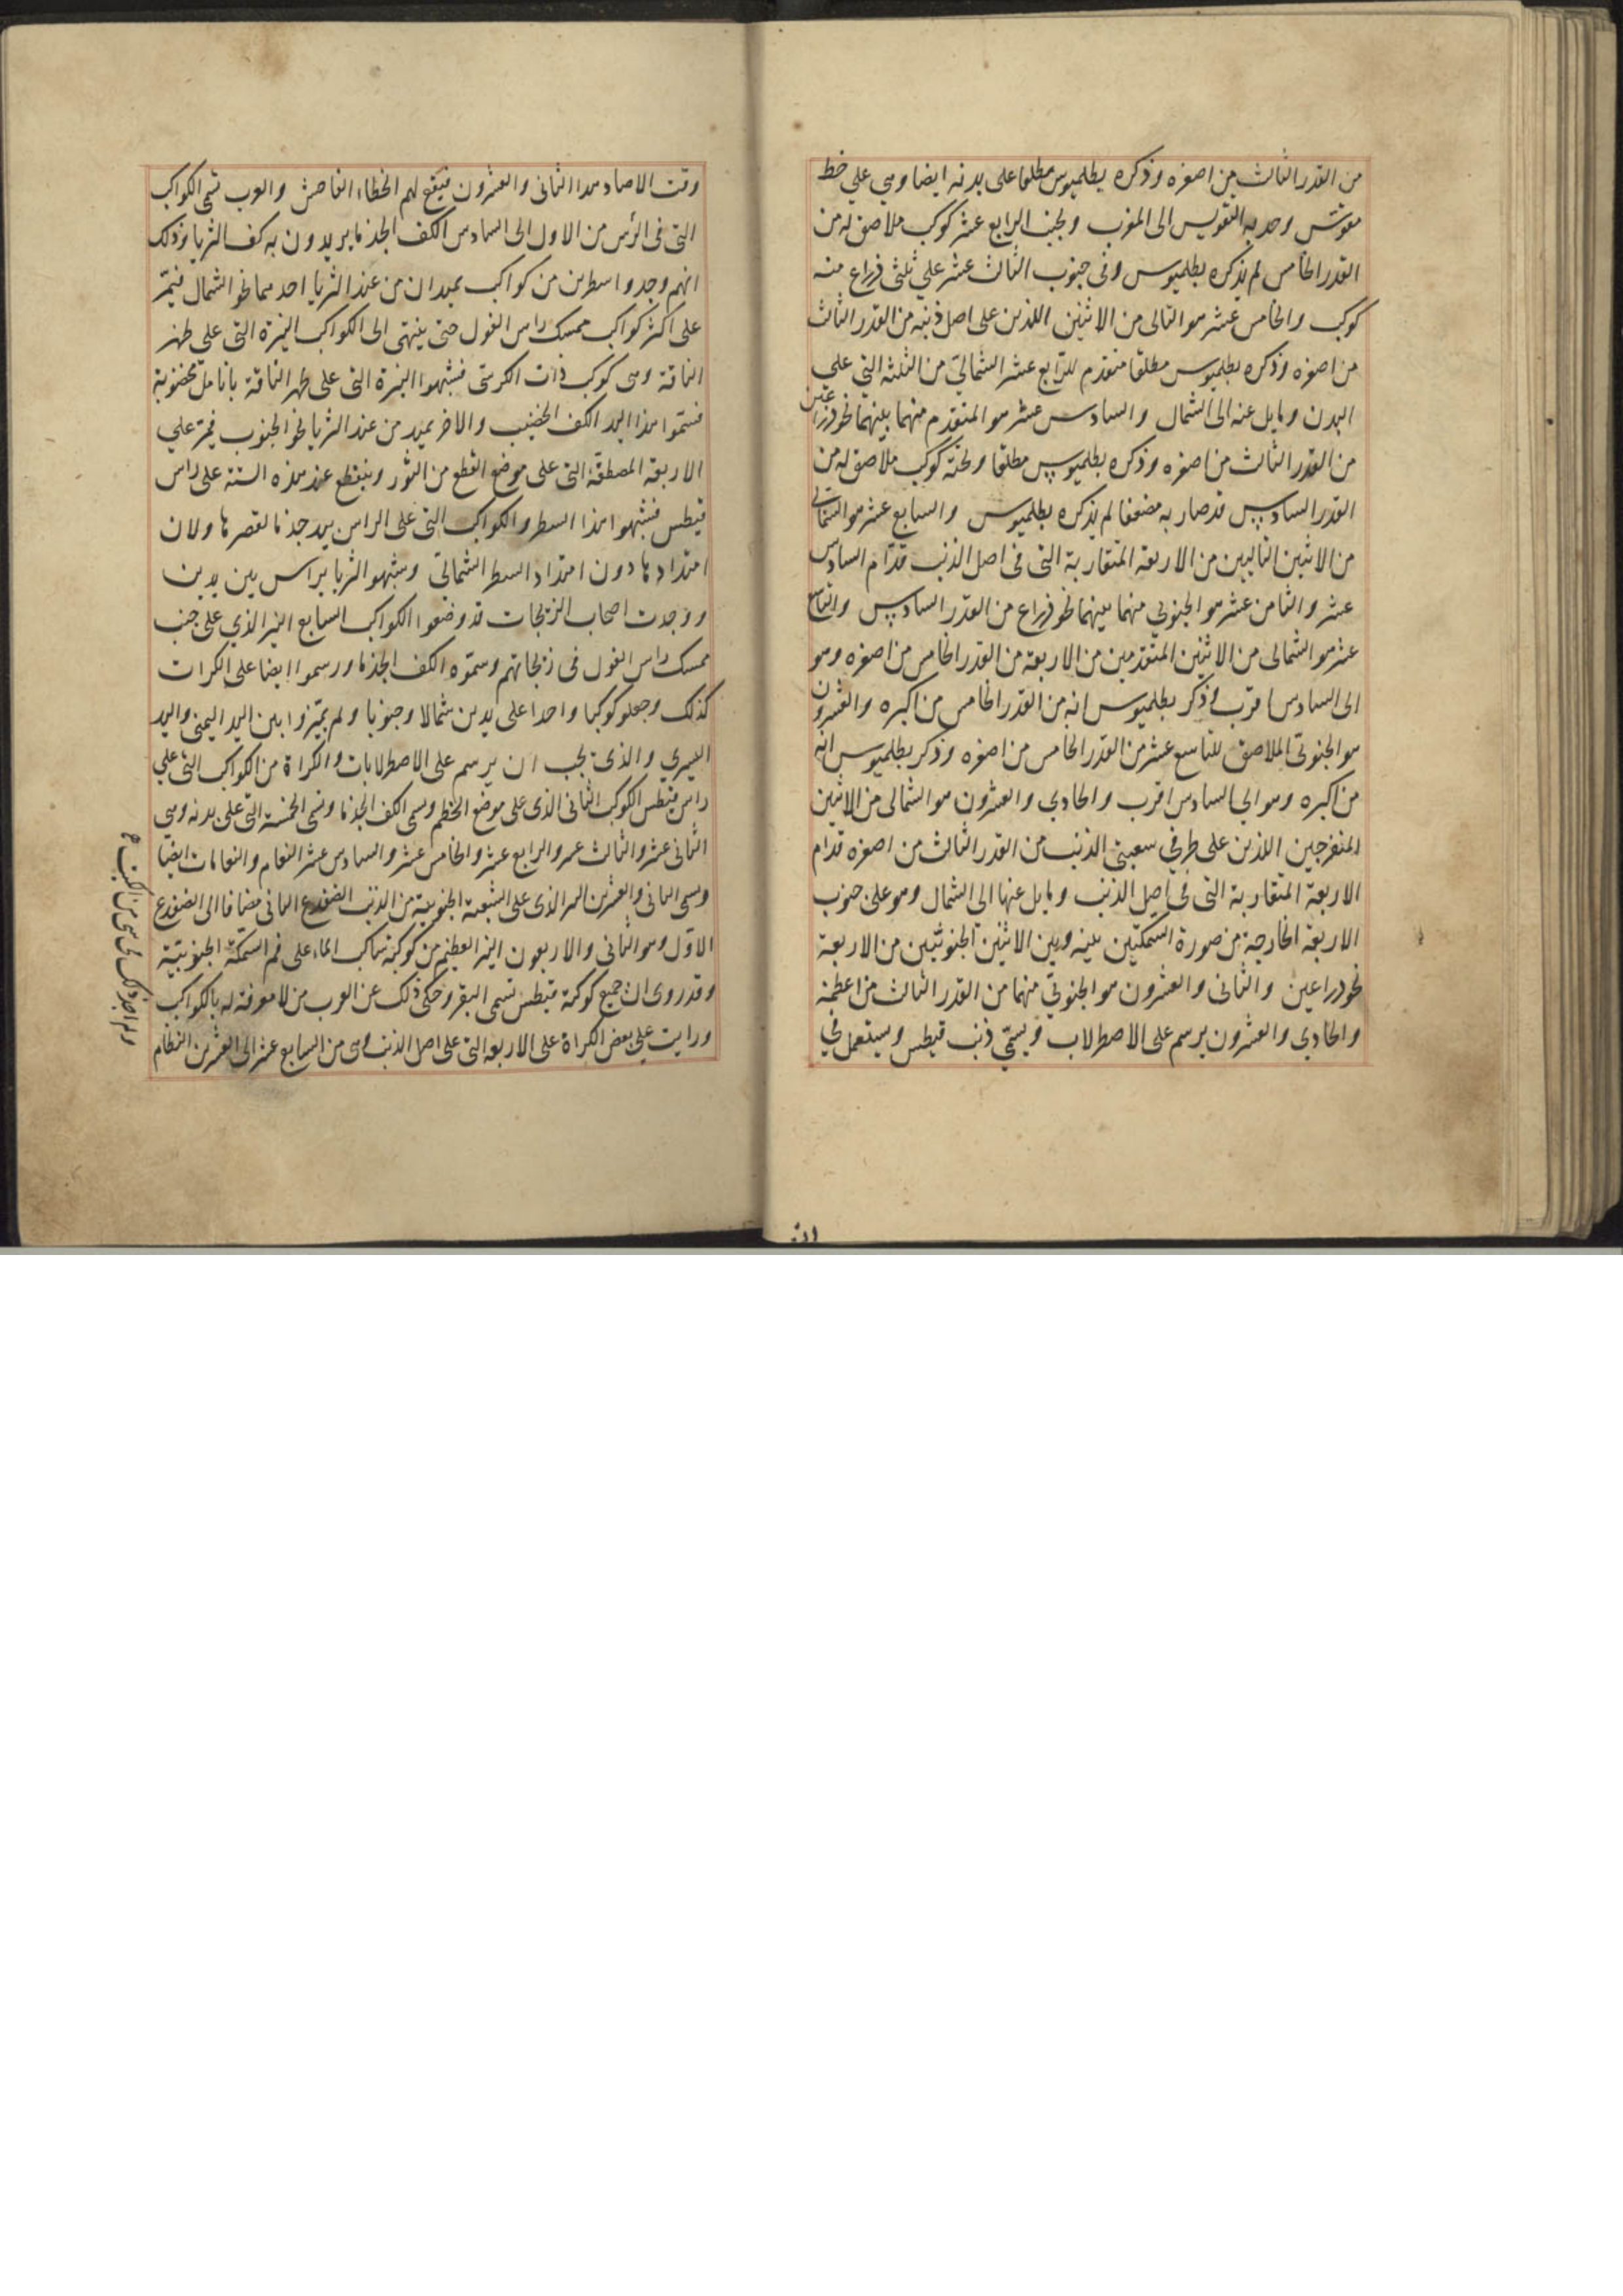 من القدر الثالث من اصغره وذكره بطلميوس مطلقا على بدنه ايضا وهي علي خط
مقوس وحدبه التقويس الى المغرب وبجنب الرابع عشر كوكب ملاصق له من
القدر الخامس لم يذكره بطلميوس وفى جنوب الثالث عشر علي ثلثى ذراع منه
كوكب والخامس عشر هو التالى من الاثنين اللذين على اصل ذنبه من القدر الثالث
من اصغره وذكره بطلميوس مطلقا متقدم للرابع عشر الشمالي من الثلثه التي علي
البدن ومايل عنه الى الشمال والسادس عشر هو المتقدم منهما بينهما نحو ذراعين
من القدر الثالث من اصغره وذكره بطلميوس مطلقا وتحته كوكب ملاصق له من
القدر السادس قد صار به مضعفا لم يذكره بطلميوس والسابع عشر هو الشمالى
من الاثنين التاليين من الاربعة المتقاربة التى فى اصل الذنب قدّام السادس
عشر والثامن عشر هو الجنوبي منهما بينهما نحو ذراع من القدر السادس والتاسع
عشر هو الشمالى من الاثنين المتقدمين من الاربعة من القدر الخامس من اصغره وهو
الى السادس اقرب وذكر بطلميوس انه من القدر الخامس من اكبره والعشرون
هو الجنوبى الملاصق للتاسع عشر من القدر الخامس من اصغره وذكر بطلميوس انه
من اكبره وهو الى السادس اقرب والحادي والعشرون هو الشمالى من الاثنين
المنفرجين اللذين على طرفي شعبتى الذنب من القدر الثالث من اصغره قدّام
الاربعة المتقاربة التى في اصل الذنب ومايل عنها الى الشمال وهو على جنوب
الاربعة الخارجة من صورة السمكتين بينه وبين الاثنين الجنوبيين من الاربعة
نحو ذراعين والثانى والعشرون هو الجنوبيّ منهما من القدر الثالث من اعظمه
والحادي والعشرون يرسم على الاصطرلاب ويسمّي ذنب قيطس ويستعمل في
وقت الارصاد هذا الثانى والعشرون فيقع لهم الخطاء الفاحش والعرب تسمى الكواكب
التى فى الرأس من الاول الى السادس الكف الجذما يريدون به كف الثريا وذلك
انهم وجدوا سطرين من كواكب يمتدان من عند الثريا احدهما نحو الشمال فيمرّ
على اكثر كواكب ممسك راس الغول حتى ينتهى الى الكواكب النيرة التى على ظهر
الناقة وهى كوكب ذات الكرسى فشبهوا النيرة التى على ظهر الناقة بانامل مخضوبة
فسمّوا هذا اليد الكف الخضيب والاخر يمتد من عند الثريا نحو الجنوب فيمرّ علي
الاربعة المصطفّة التى على موضع القطع من الثور وينقطع عند هذه الستة على راس
قيطس فشبهوا هذا السطر والكواكب التى على الراس بيد جذما لقصرها ولان
امتدادها دون امتداد السطر الشمالي وشبهوا الثريا براس بين يدين
ووجدت اصحاب الزيجات قد وضعوا الكواكب السابع النير الذي على جنب
ممسك راس الغول فى زيجاتهم وسمّوه الكف الجذما ورسموا ايضا على الكرات
كذلك وجعلو كوكبا واحدا على يدين شمالا وجنوبا ولم يميّزوا بين اليد اليمنى واليد
اليسري والذى يجب ان يرسم على الاصطرلابات والكراة من الكواكب التى علي
راس قيطس الكوكب الثانى الذى على موضع الخطم ويسمى الكف الجذما وتسمى الخمسة التى على بدنه وهى
الثانى عشر والثالث عشر والرابع عشر والخامس عشر والسادس عشر النعام والنعامات ايضا
ويسمى الثانى والعشرين النير الذى على الشعبة الجنوبية من الذنب الضفدع الثانى مضافا الى الضفدع
الاوّل وهو الثانى والاربعون النير العظيم من كوكبة ساكب الماء على فم السمكة الجنوبية
وقد روى ان جميع كوكبة قيطس تسمى البقر وحكى ذلك عن العرب من لا معرفة له بالكواكب
ورايت على بعض الكراة على الاربعه التى على اصل الذنب وهى من السابع عشر الى العشرين النظام
ولم اجد ذلك فى شى من الكتب